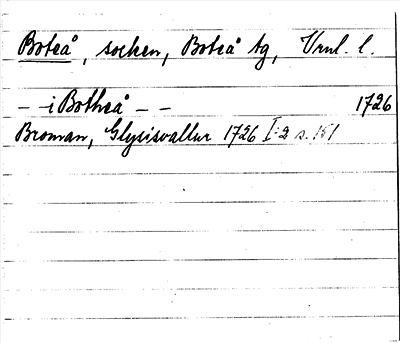 Boteå, socken, Boteå tg, Vrnl. l.
- - i Botheå - - 1726
Broman, Glysisvallur 1726 I:2 s. 151